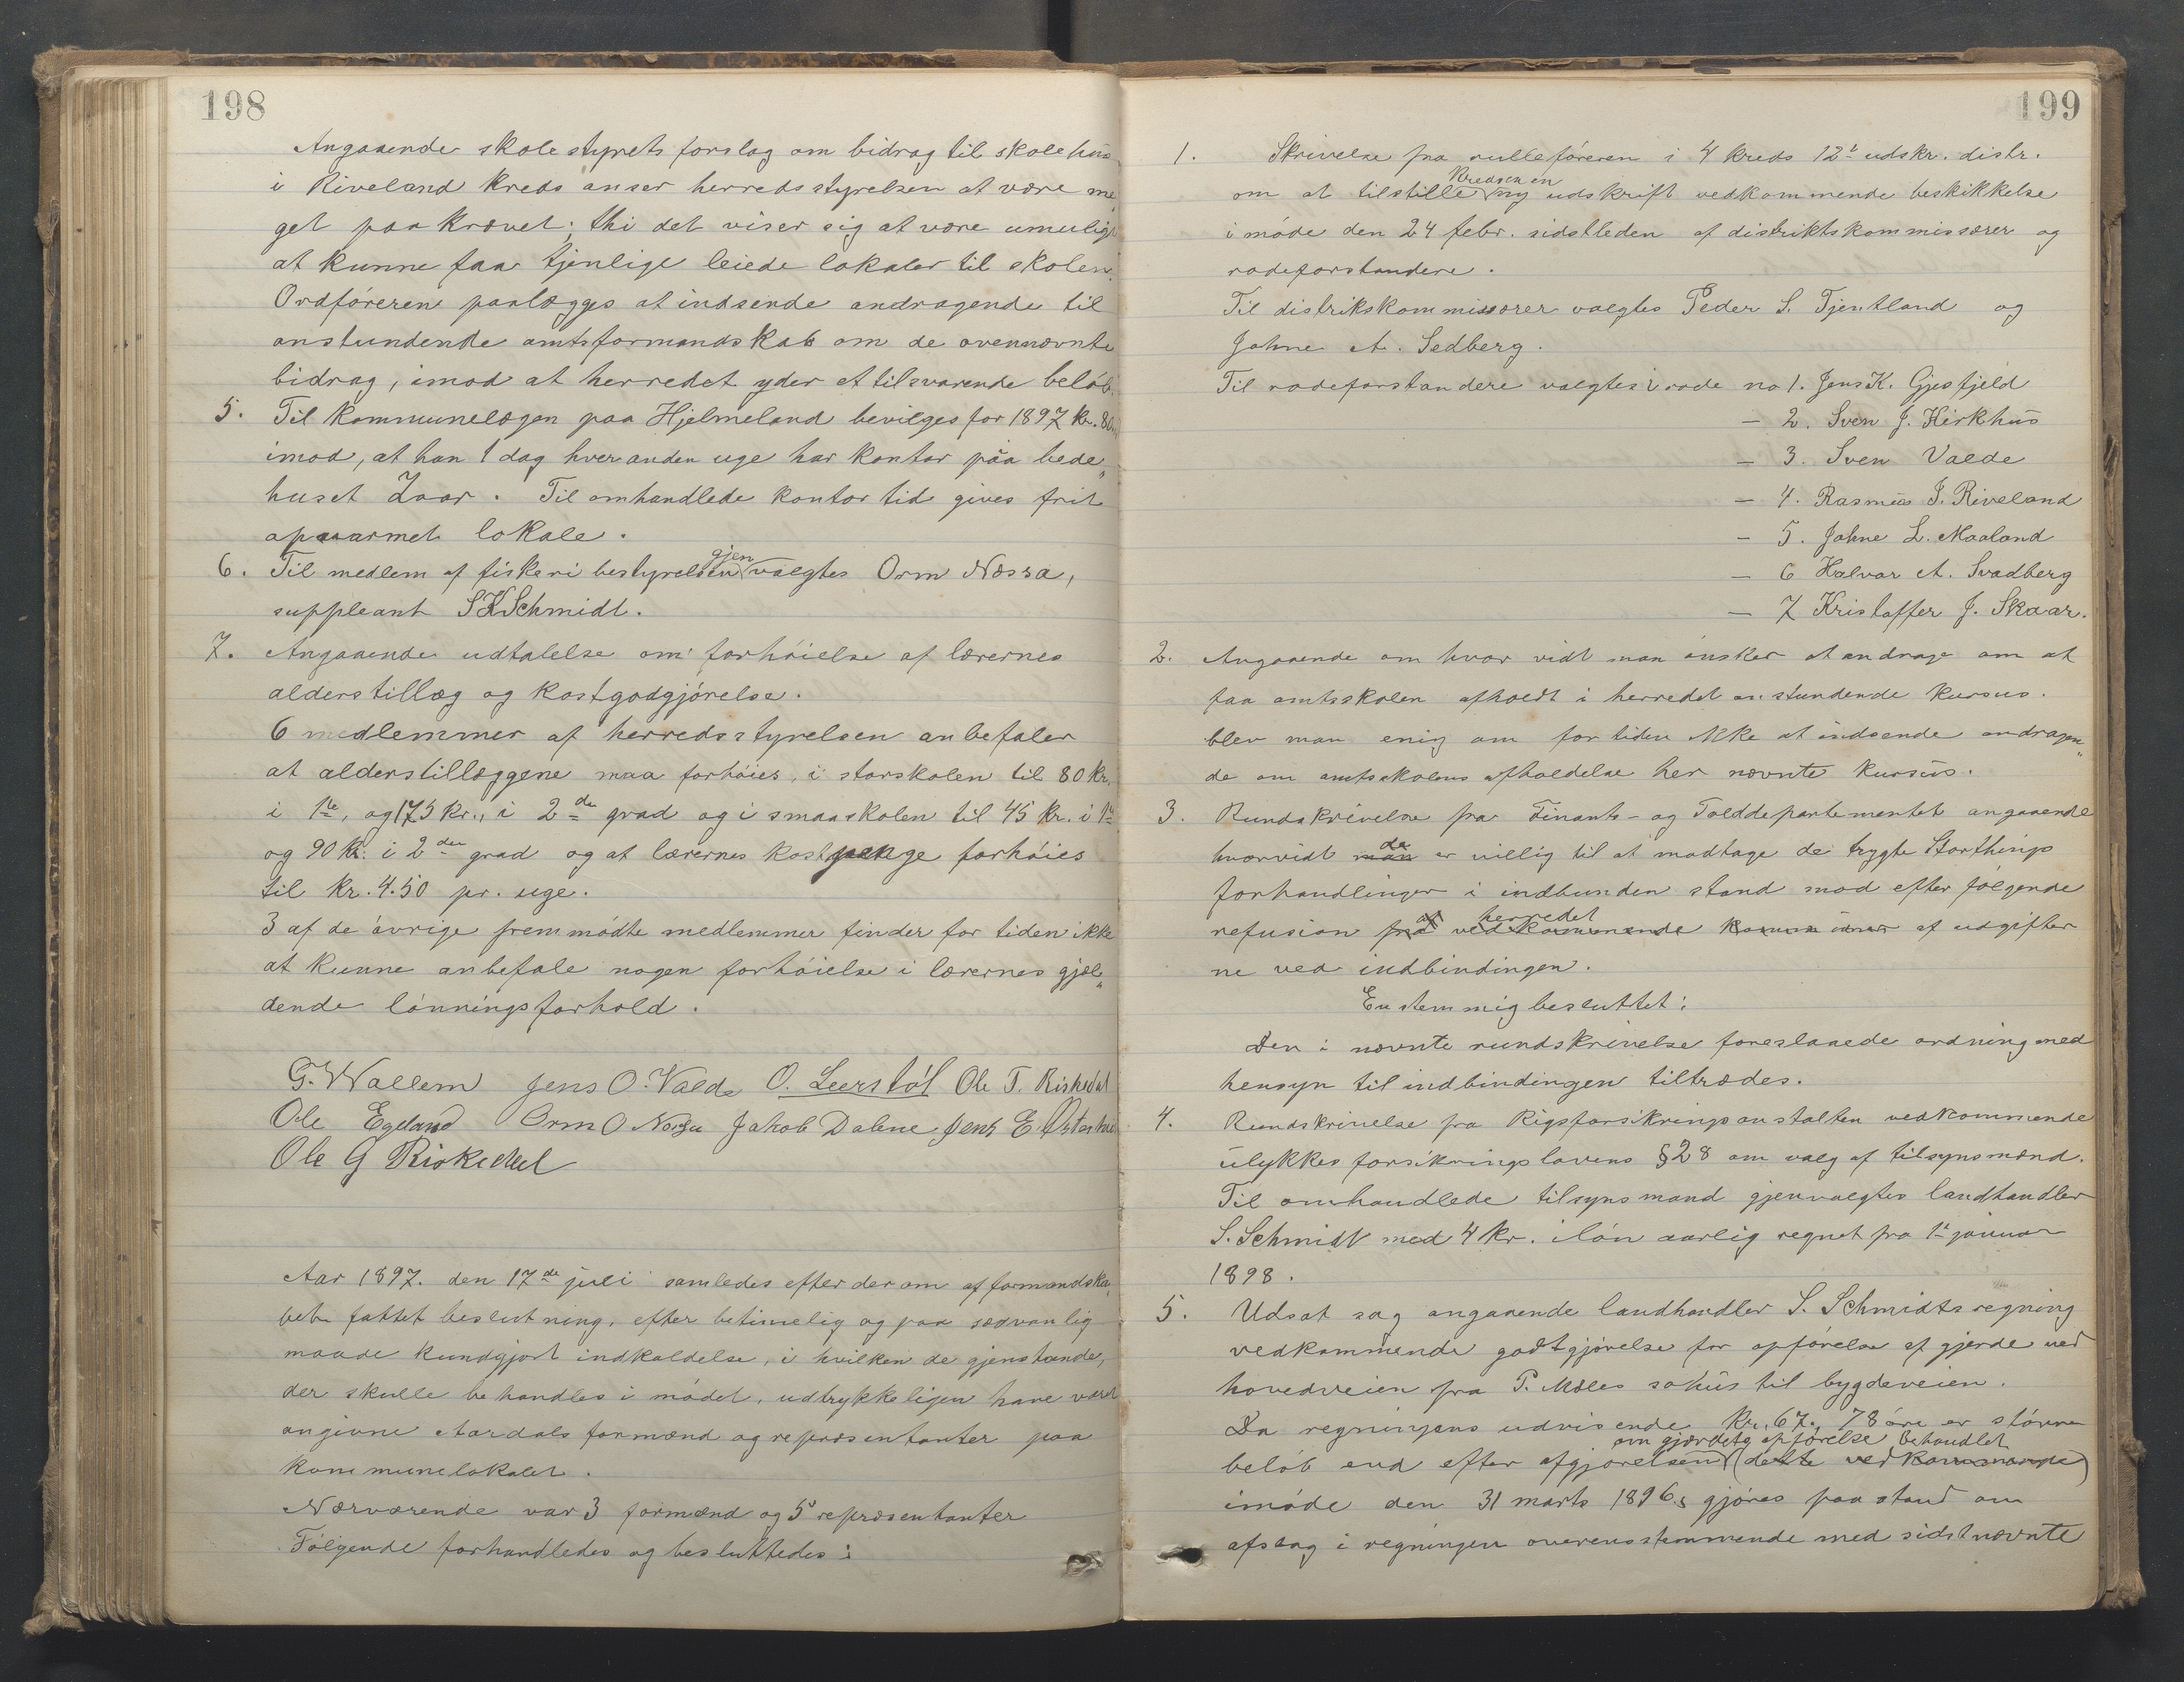 198
Angaaende skolestyrets forslag om bidrag til skolehus
i Riveland kreds anser herredsstyrelsen at være me„
get paakrævet; thi det viser sig at være umuligt
at kunne faa tjenlige leiede lokaler til skolen.
Ordføreren paalægges at indsende andragende til
anstundende amtsformandskab om de ovennævnte
bidrag, imod at herredet yder et tilsvarende beløb.
5. Til kommunelægen paa Hjelmeland bevilges for 1897 kr. 80
imod, at han 1 dag hver anden uge har kontor paa bede„
huset Zoar. Til omhandlede kontortid gives frit
opvarmet lokale.
6. Til medlem af fiskeribestyrelsen gjenvalgtes Orm Næssa,
suppleant S K Schmidt.
7. Angaaende udtalelse om forhøielse af lærernes
alderstillæg og kostgodtgjørelse.
6 medlemmer af herredsstyrelsen anbefaler
at alderstillæggene maa forhøies, i storskolen til 80 kr.
i 1ste, og 175 kr., i 2den grad og i smaaskolen til 45 kr. i 1ste
og 90 kr. i 2den grad og at lærernes kostpenge forhøies
til kr. 4.50 pr. uge.
3 af de øvrige fremmødte medlemmer finder for tiden ikke
at kunne anbefale nogen forhøielse i lærernes gjæl„
dende lønningsforhold.
G. Wallem Jens O. Valde O. Leerstøl Ole T. Riskedal
Ole Egeland Orm O Næssa Jakob Dalene Jens E. Østerhus
Ole G Riskedal
Aar 1897. den 17de juli samledes efter derom af formandska„
bet fattet beslutning, efter betimelig og paa sædvanlig
maade kundgjort indkaldelse, i hvilken de gjenstande,
der skulle behandles i mødet, udtrykkeligen have været
angivne Aardals formænd og repræsentanter paa
kommunelokalet.
Nærværende var 3 formænd og 5 repræsentanter
Følgende forhandledes og besluttedes:
199
1. Skrivelse fra rulleføreren i 4 kreds 12te udskr. distr.
om at tilstille kredsen en ny udskrift vedkommende beskikkelse
i møde den 24 febr. sidstleden af distriktskommissærer og
rodeforstandere.
Til distrikskommissærer valgtes Peder S. Tjentland og
Johne A. Sedberg.
Til rodeforstandere valgtes i rode no 1. Jens K. Gjesfjeld
— 2. Sven J. Kirkhus
— 3. Sven Valde
— 4. Rasmus J. Riveland
— 5. Johne L. Maaland
— 6 Halvor A. Svadberg
— 7 Kristoffer J. Skaar.
2. Angaaende om hvorvidt man ønsker at andrage om at
faa amtsskolen afholdt i herredet anstundende kursus.
blev man enig om for tiden ikke at indsende andragen„
de om amtsskolens afholdelse her nævnte kursus.
3. Rundskrivelse fra Finants- og Tolddepartementet angaaende
hvorvidt man da er villig til at modtage de trygte Storthings
forhandlinger i indbunden stand mod efterfølgende
refusion fra af vedkommende herredet kommuner af udgifter
ne ved indbindingen.
Enstemmig besluttet:
Den i nævnte rundskrivelse foreslaaede ordning med
hensyn til indbindingen tiltrædes.
4. Rundskrivelse fra Rigsforsikringsanstalten vedkommende
ulykkesforsikringslovens § 28 om valg af tilsynsmænd.
Til omhandlede tilsynsmand gjenvalgtes landhandler
S. Schmidt med 4 kr. i løn aarlig regnet fra 1ste januar
1898.
5. Udsat sag angaaende landhandler S. Schmidts regning
vedkommende godtgjørelse for opførelse af gjerde ved
hovedveien fra P. Mæles søhus til bygdeveien.
Da regningens udvisende kr. 67. 78 øre er større
beløb end efter afgjørelsen om gjærdets opførelse behandlet (dette vedkommende)
i møde den 31 marts 1896, gjøres paastand om
afslag i regningen overensstemmende med sidstnævnte